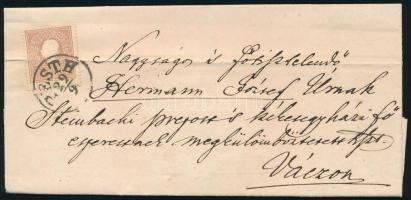 PESTH
22/9
Nagyságos és Főtisztelendő
Hermann József Úrnak
Steinbachi prépost és székesegyházi fő
esperesnek megkülönböztetett
Váczon